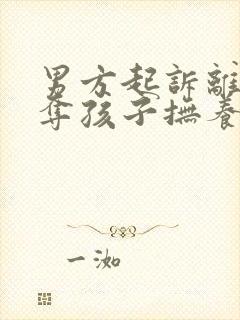 男方起訴離
奪孩子撫養
一洳